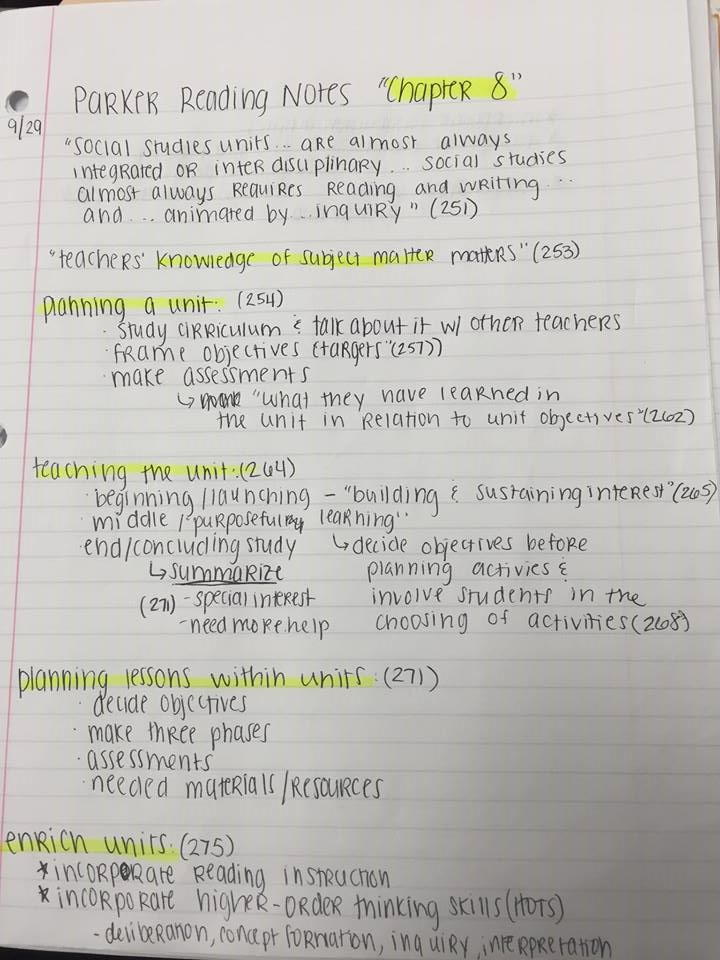 PARKER READING NOTES "Chapter 8"
9/29
"Social studies units... are almost always
integrated or inter disciplinary... social studies
almost always requires reading and writing...
and... animated by... inquiry" (251)
"teachers' knowledge of subject matter matters" (253)
planning a unit: (254)
· study cirriculum & talk about it w/ other teachers
· frame objectives (targets"(257))
· make assessments
↳ "what they have learned in
the unit in relation to unit objectives"(262)
teaching the unit:(264)
· beginning/launching - "building & sustaining interest"(265)
· middle / "purposeful learning"
· end/concluding study ↳ decide objectives before
↳ summarize planning activies &
(271) - special interest involve students in the
- need more help choosing of activities (268)
planning lessons within units: (271)
· decide objectives
· make three phases
· assessments
· needed materials/resources
enrich units: (275)
* incorporate reading instruction
* incorporate higher-order thinking skills (HOTS)
- deliberation, concept formation, inquiry, interpretation